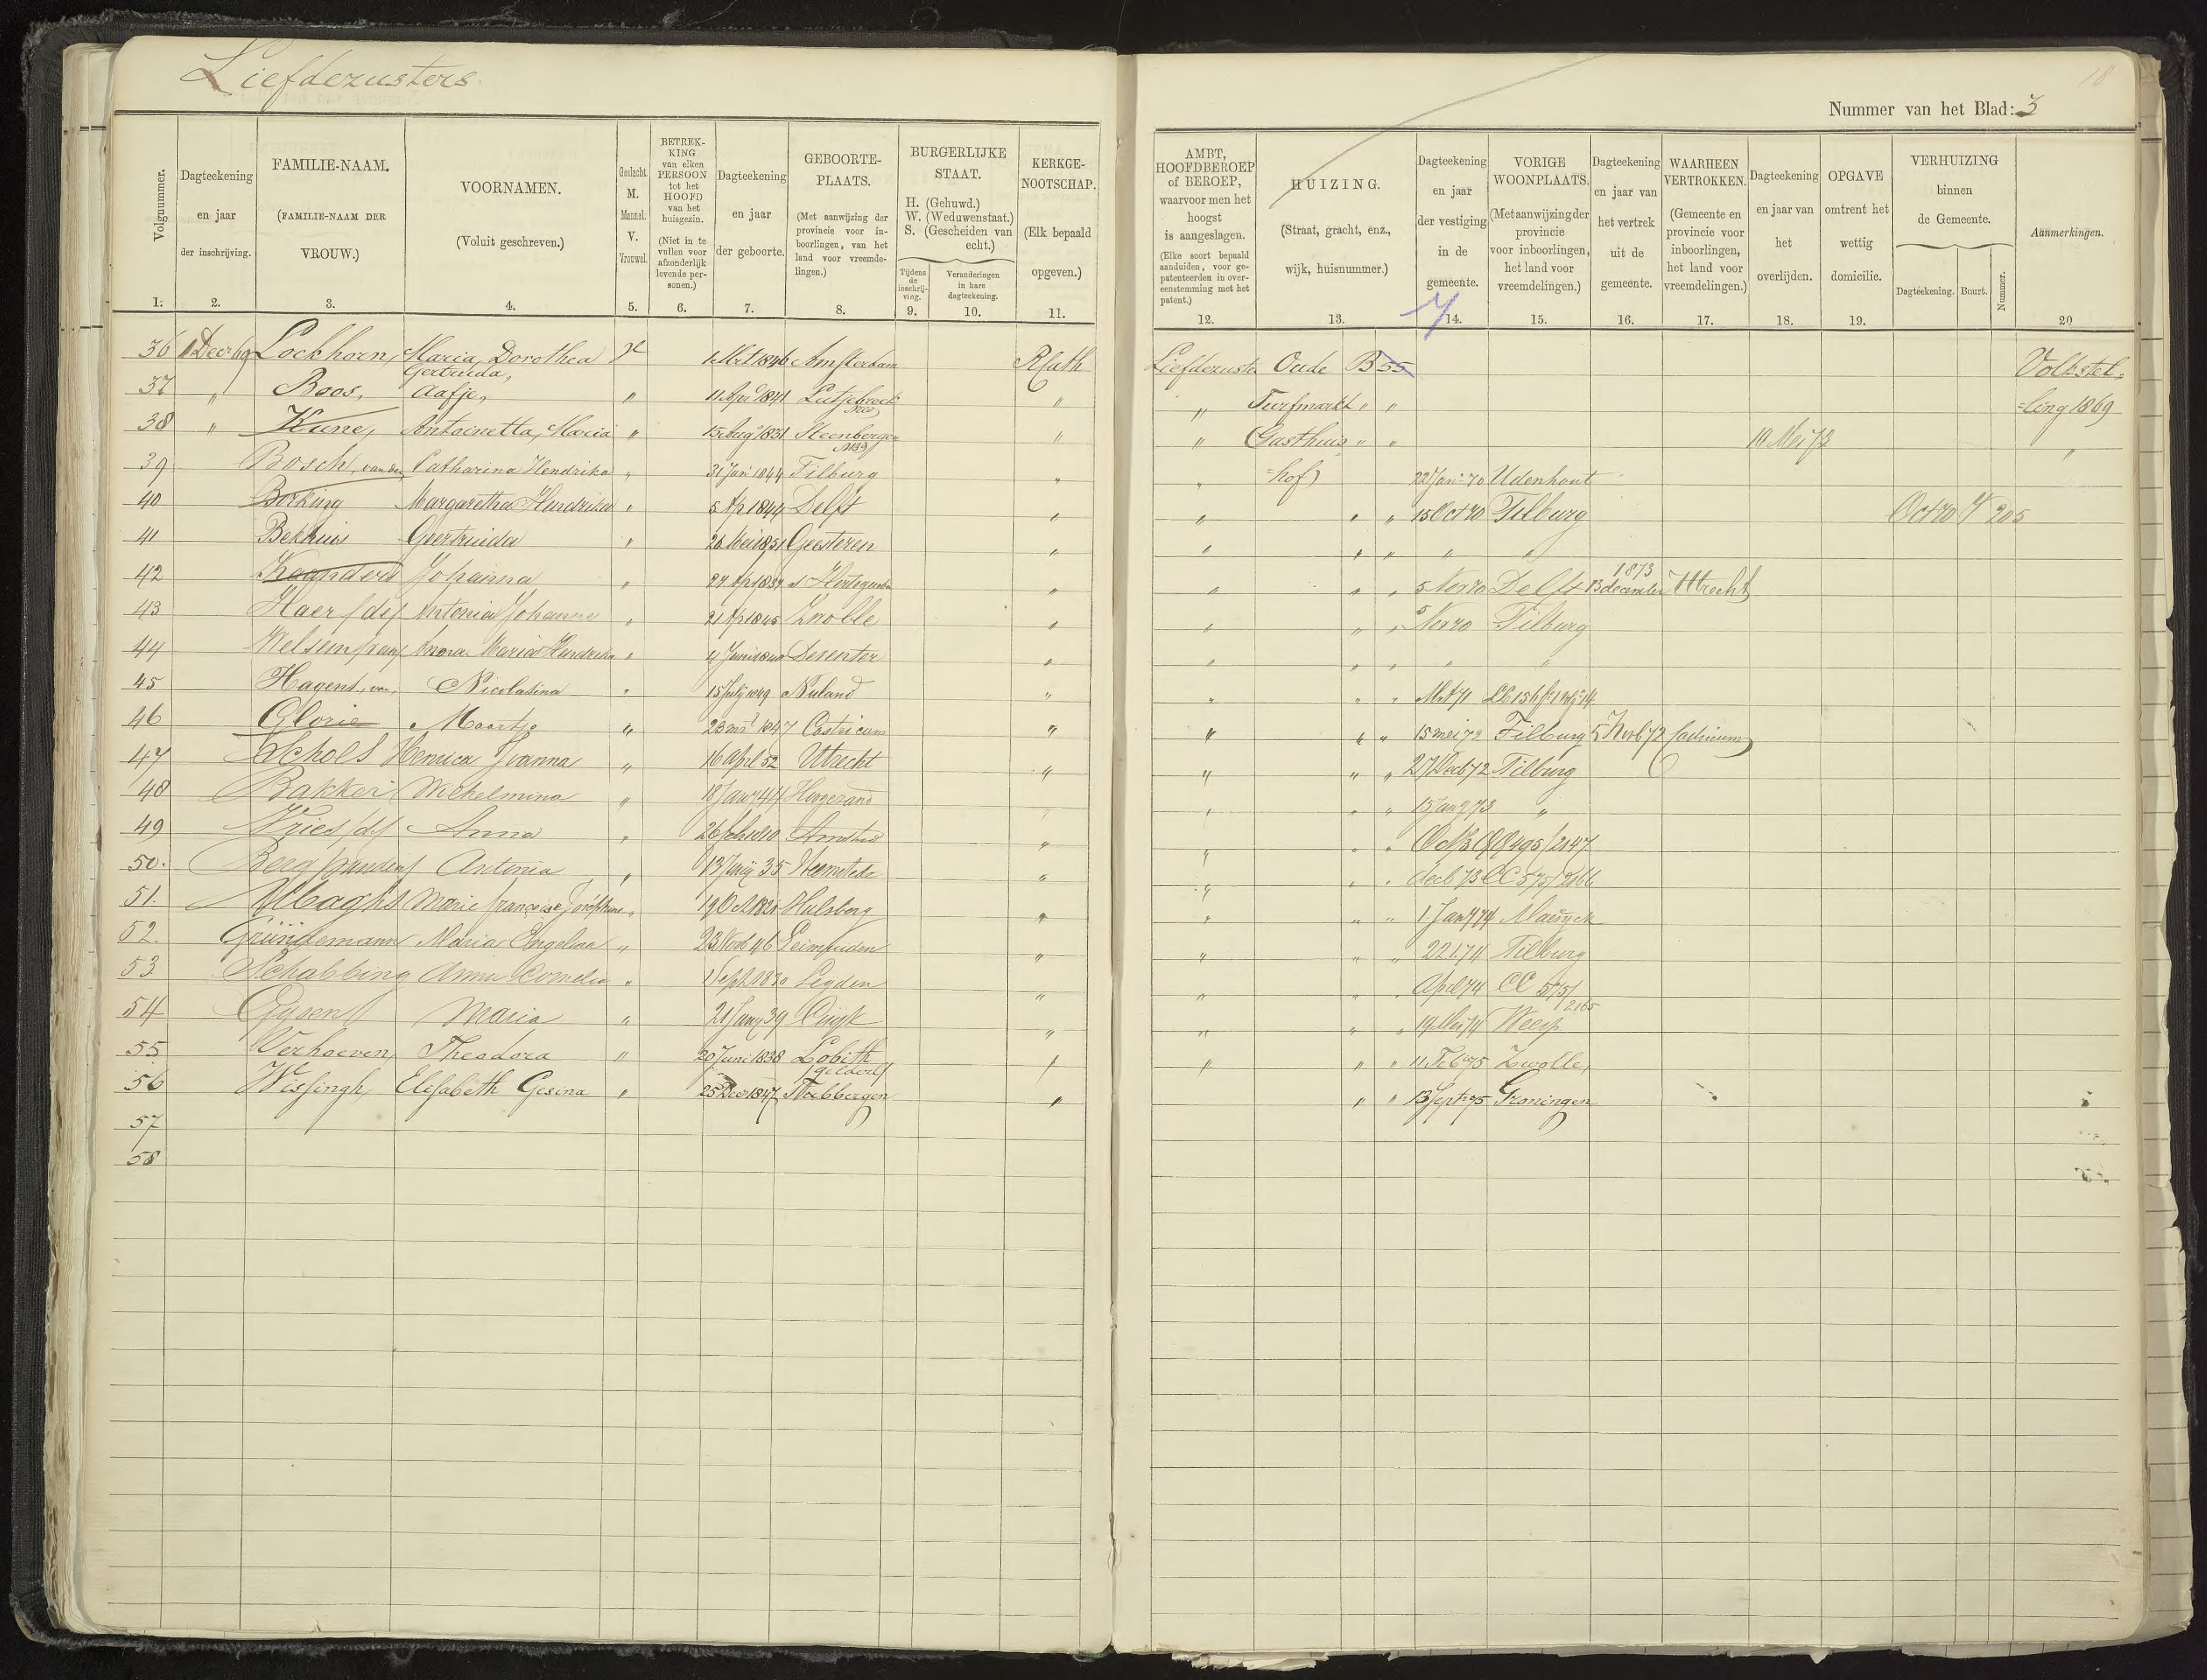 Liefdezusters
18
Nummer van het Blad: 3
Volgnummer. 1.
Dagteekening en jaar der inschrijving. 2.
FAMILIE-NAAM. (FAMILIE-NAAM DER VROUW.) 3.
VOORNAMEN. (Voluit geschreven.) 4.
Geslacht. M. Mannel. V. Vrouwel. 5.
BETREKKING van elken PERSOON tot het HOOFD van het huisgezin. (Niet in te vullen voor afzonderlijk levende personen.) 6.
Dagteekening en jaar der geboorte. 7.
GEBOORTE-PLAATS. (Met aanwijzing der provincie voor inboorlingen, van het land voor vreemdelingen.) 8.
BURGERLIJKE STAAT. H. (Gehuwd.) W. (Weduwenstaat.) S. (Gescheiden van echt.)
Tijdens de inschrijving. 9.
Veranderingen in hare dagteekening. 10.
KERKGENOOTSCHAP. (Elk bepaald opgeven.) 11.
AMBT, HOOFDBEROEP of BEROEP, waarvoor men het hoogst is aangeslagen. (Elke soort bepaald aanduiden, voor gepatenteerden in overeenstemming met het patent.) 12.
HUIZING. (Straat, gracht, enz., wijk, huisnummer.) 13.
Dagteekening en jaar der vestiging in de gemeente. 14.
VORIGE WOONPLAATS. (Met aanwijzing der provincie voor inboorlingen, het land voor vreemdelingen.) 15.
Dagteekening en jaar van het vertrek uit de gemeente. 16.
WAARHEEN VERTROKKEN. (Gemeente en provincie voor inboorlingen, het land voor vreemdelingen.) 17.
Dagteekening en jaar van het overlijden. 18.
OPGAVE omtrent het wettig domicilie. 19.
VERHUIZING binnen de Gemeente. Dagteekening. Buurt. Nummer.
Aanmerkingen. 20
36 1 Decr 69 Lockhorn, Maria Dorothea Gertruida, V 1 Mrt 1846 Amsterdam R Cath Liefdezuster Oude B 55 Volkstel-
37 " Boos, Aafje, " 11 Apr 1841 Lutjebroek " " Turfmarkt " " =ling 1869
38 " Kune, Antoinetta, Maria " 15 Aug 1831 Steenbergen " " Gasthuis " " 10 Mei 72 "
39 Bosch, van den, Catharina Hendrika " 31 Jan 1844 Tilburg " " =hof) 22 Jan 70 Udenhout
40 Borking Margaretha Hendrika " 5 Ap 1844 Delft " " " " 15 Oct 70 Tilburg Oct 70 205
41 Bekhuis Geertruida " 26 Mei 1851 Geesteren " " " " " "
42 Johanna " 27 Ap 1837 " " " " 5 Nov 70 Delft 13 december 1873 Utrecht
43 Haer /de/ Antonia Johanna " 21 Ap 1845 Zwolle " " " " 5 Nov 70 Tilburg
44 Welsem /van/ Anna Maria Hendrika " 4 Juni 1840 Deventer " " " " " "
45 Hagent, van, Nicolasina " 15 July 1849 Nuland " " " " Mrt 71
46 Glorie Maartje " 23 mrt 1847 Castricum " " " " 15 mei 72 Tilburg 5 Novb 72 Castricum
47 Schols Henrica Joanna " 16 April 52 Utrecht " " " " 27 Decb 72 Tilburg
48 Bakker Wilhelmina " 18 Jany 44 " " " " 15 Jany 73 "
49 Vries /de/ Anna " 26 Feb " " " " 495/2147
50. Berg /van den/ Antonia " 13 Juny 35 Heemstede " " " " decb 73 CC 575/2166
51. Marie françoise Joséphine " 19 Oct Hulsberg " " " " 1 Jany 74
52. Gründemann Maria Engelina " 23 Novb 46 Leimuiden " " " " 22 1.74 Tilburg
53 Schabbing Anna Cornelia " 1 Sept 1830 Leyden " " " " April 74 CC 575/2165
54 Gijsen Maria " 21 Jany 39 Cuijk " " " " 19 Mei 74 Weesp
55 Verhoeven, Theodora " 20 Juni 1838 Lobith /Gelderl/ " " " " 11 Feb 75 Zwolle,
56 Wissingh, Elisabeth Gesina " 25 Decr 1847 Tubbergen " " " 13 Sept 75 Groningen
57
58